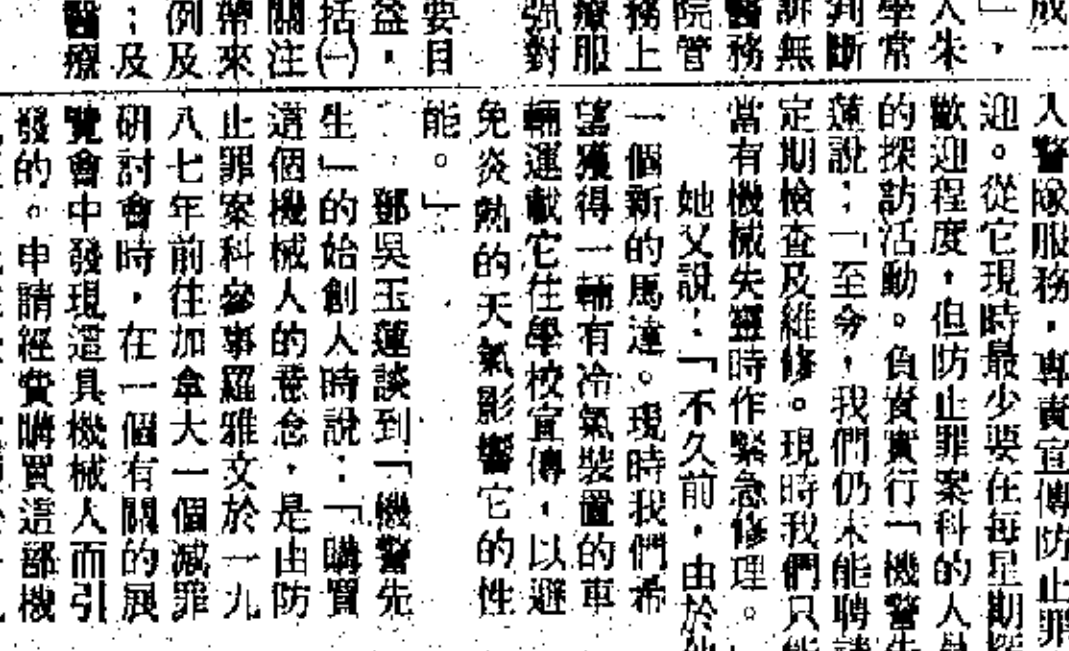 成一
人朱
學常
判斷
訴無
醫務
院管
務上
療服
强對
要目
益，
括㈠
關注
帶來
例及
；及
醫療
人警隊服務，專責宣傳防止罪
迎。從它現時最少要在每星期探
歡迎程度，但防止罪案科的人員
的探訪活動。負責實行「機警先
蓮說：「至今，我們仍未能聘請
定期檢查及維修。現時我們只能
當有機械失靈時作緊急修理。」
她又說：「不久前，由於
一個新的馬達。現時我們希
望獲得一輛有冷氣裝置的車
輛運載它往學校宣傳，以避
免炎熱的天氣影響它的性
能。」
鄧吳玉蓮談到「機警先
生」的始創人時說：「購買
這個機械人的意念，是由防
止罪案科參事羅雅文於一九
八七年前往加拿大一個減罪
研討會時，在一個有關的展
覽會中發現這具機械人而引
發的。申請經費購買這部機